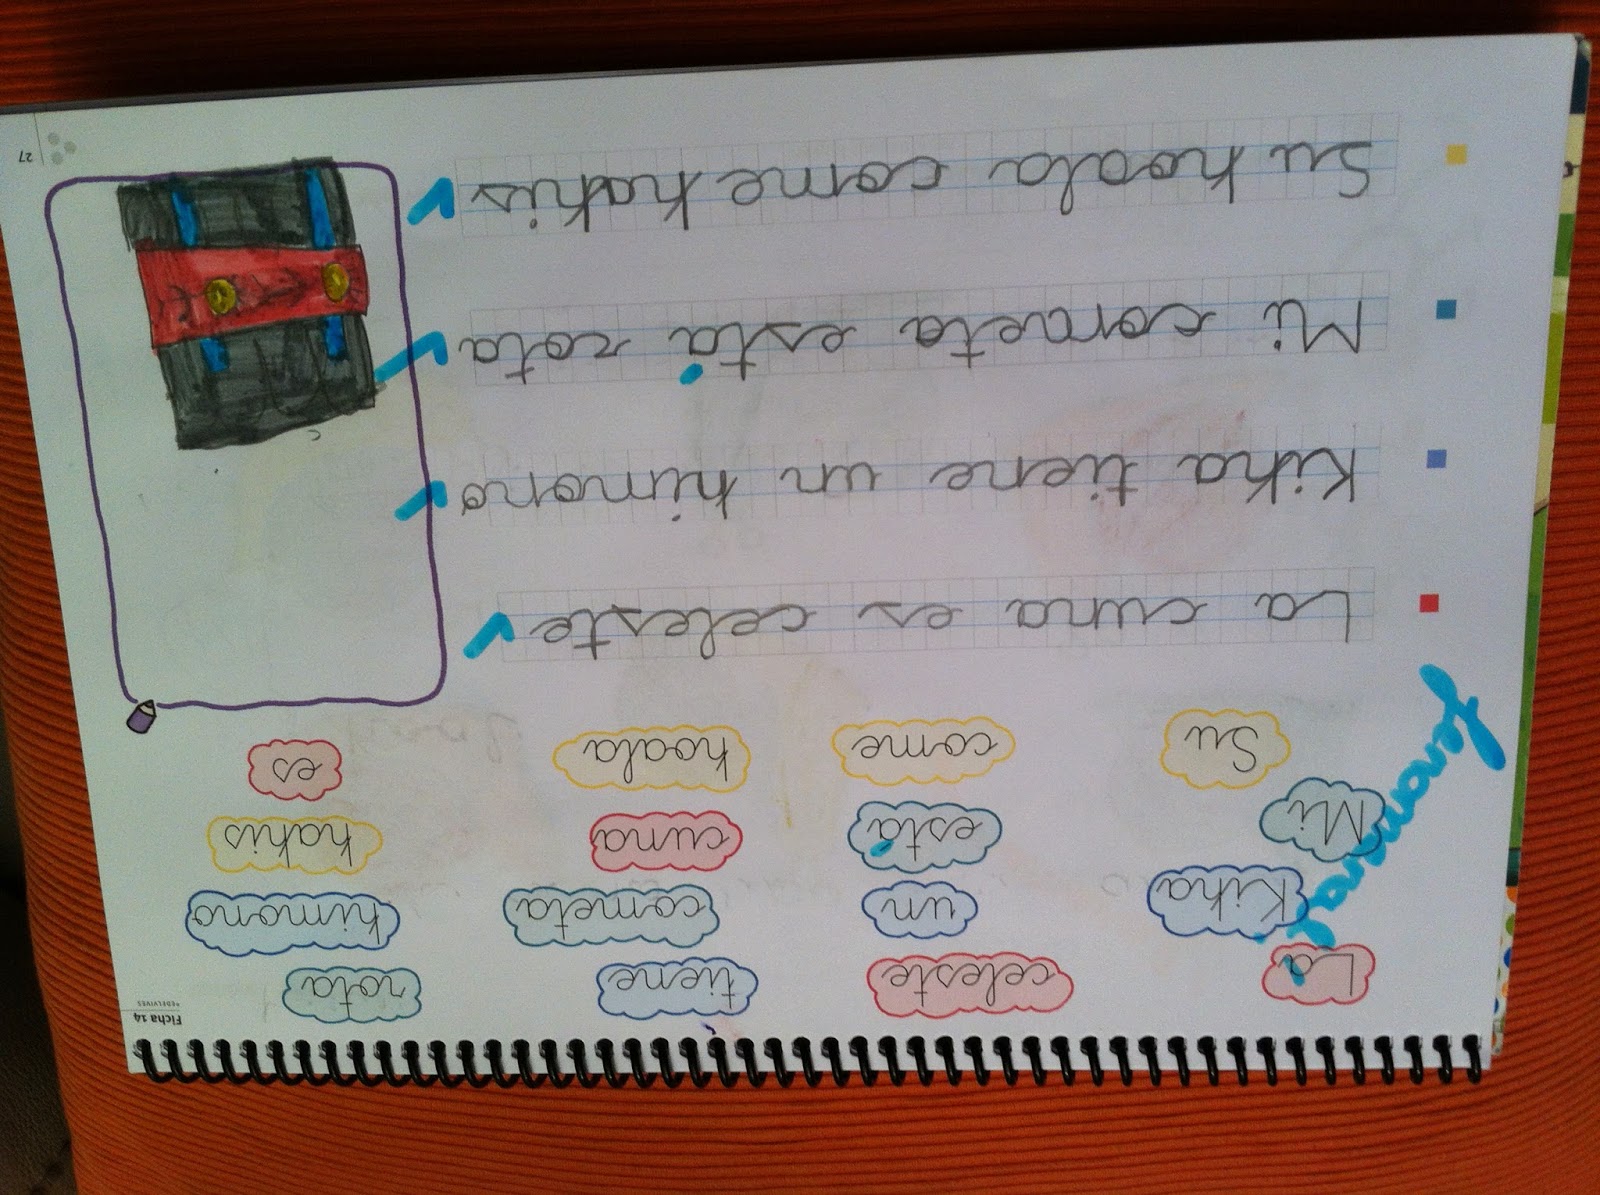 Ficha 14
EDELVIVES
La celeste tiene rota
Kika un cometa kimono
Mi está cuna kakis
Su come koala es
La cuna es celeste
Kika tiene un kimono
Mi cometa está rota
Su koala come kakis
27